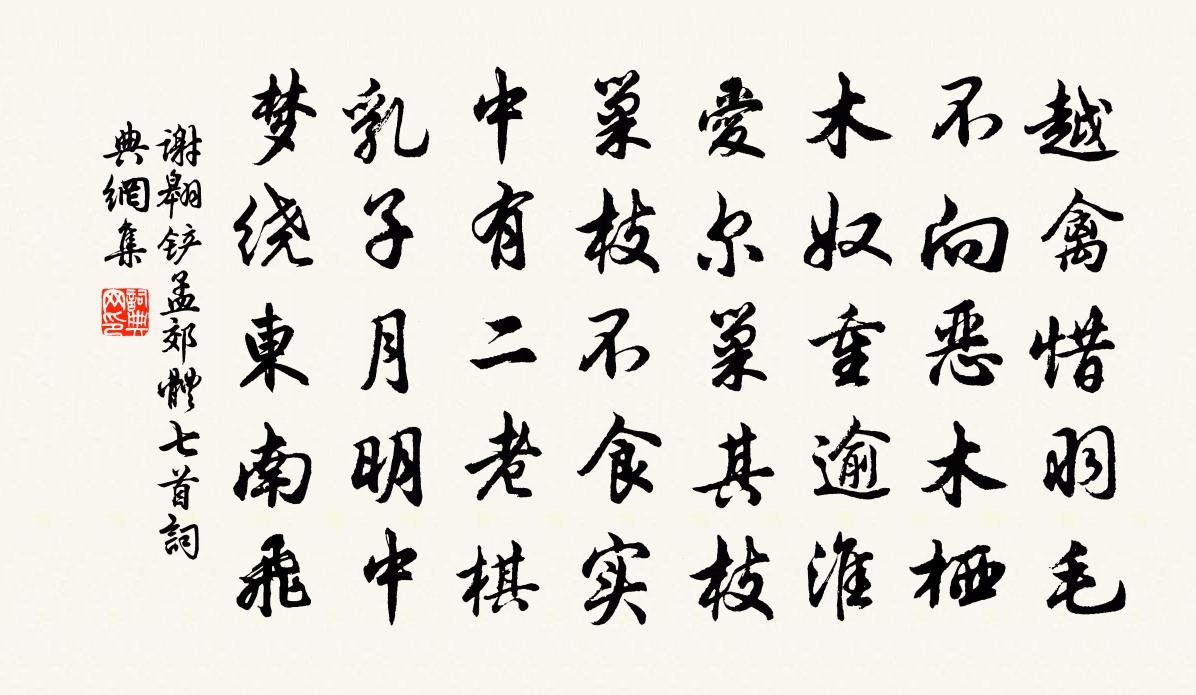 越禽惜羽毛
不向恶木栖
木奴重逾淮
愛尔巢其枝
巢枝不食实
中有二老棋
乳子月明中
梦绕東南飛
谢翱铲孟郊體七首詞
典網集
詞典网印